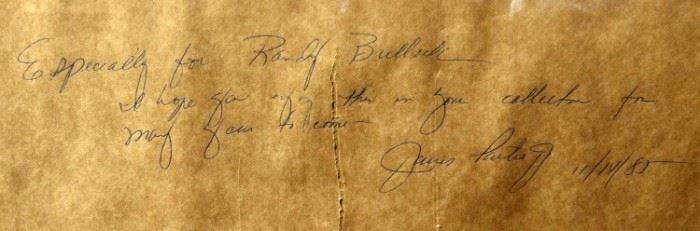 Especially for Randy Bullock
I hope you enjoy this in your collection for
many years to come
James 11/14/85